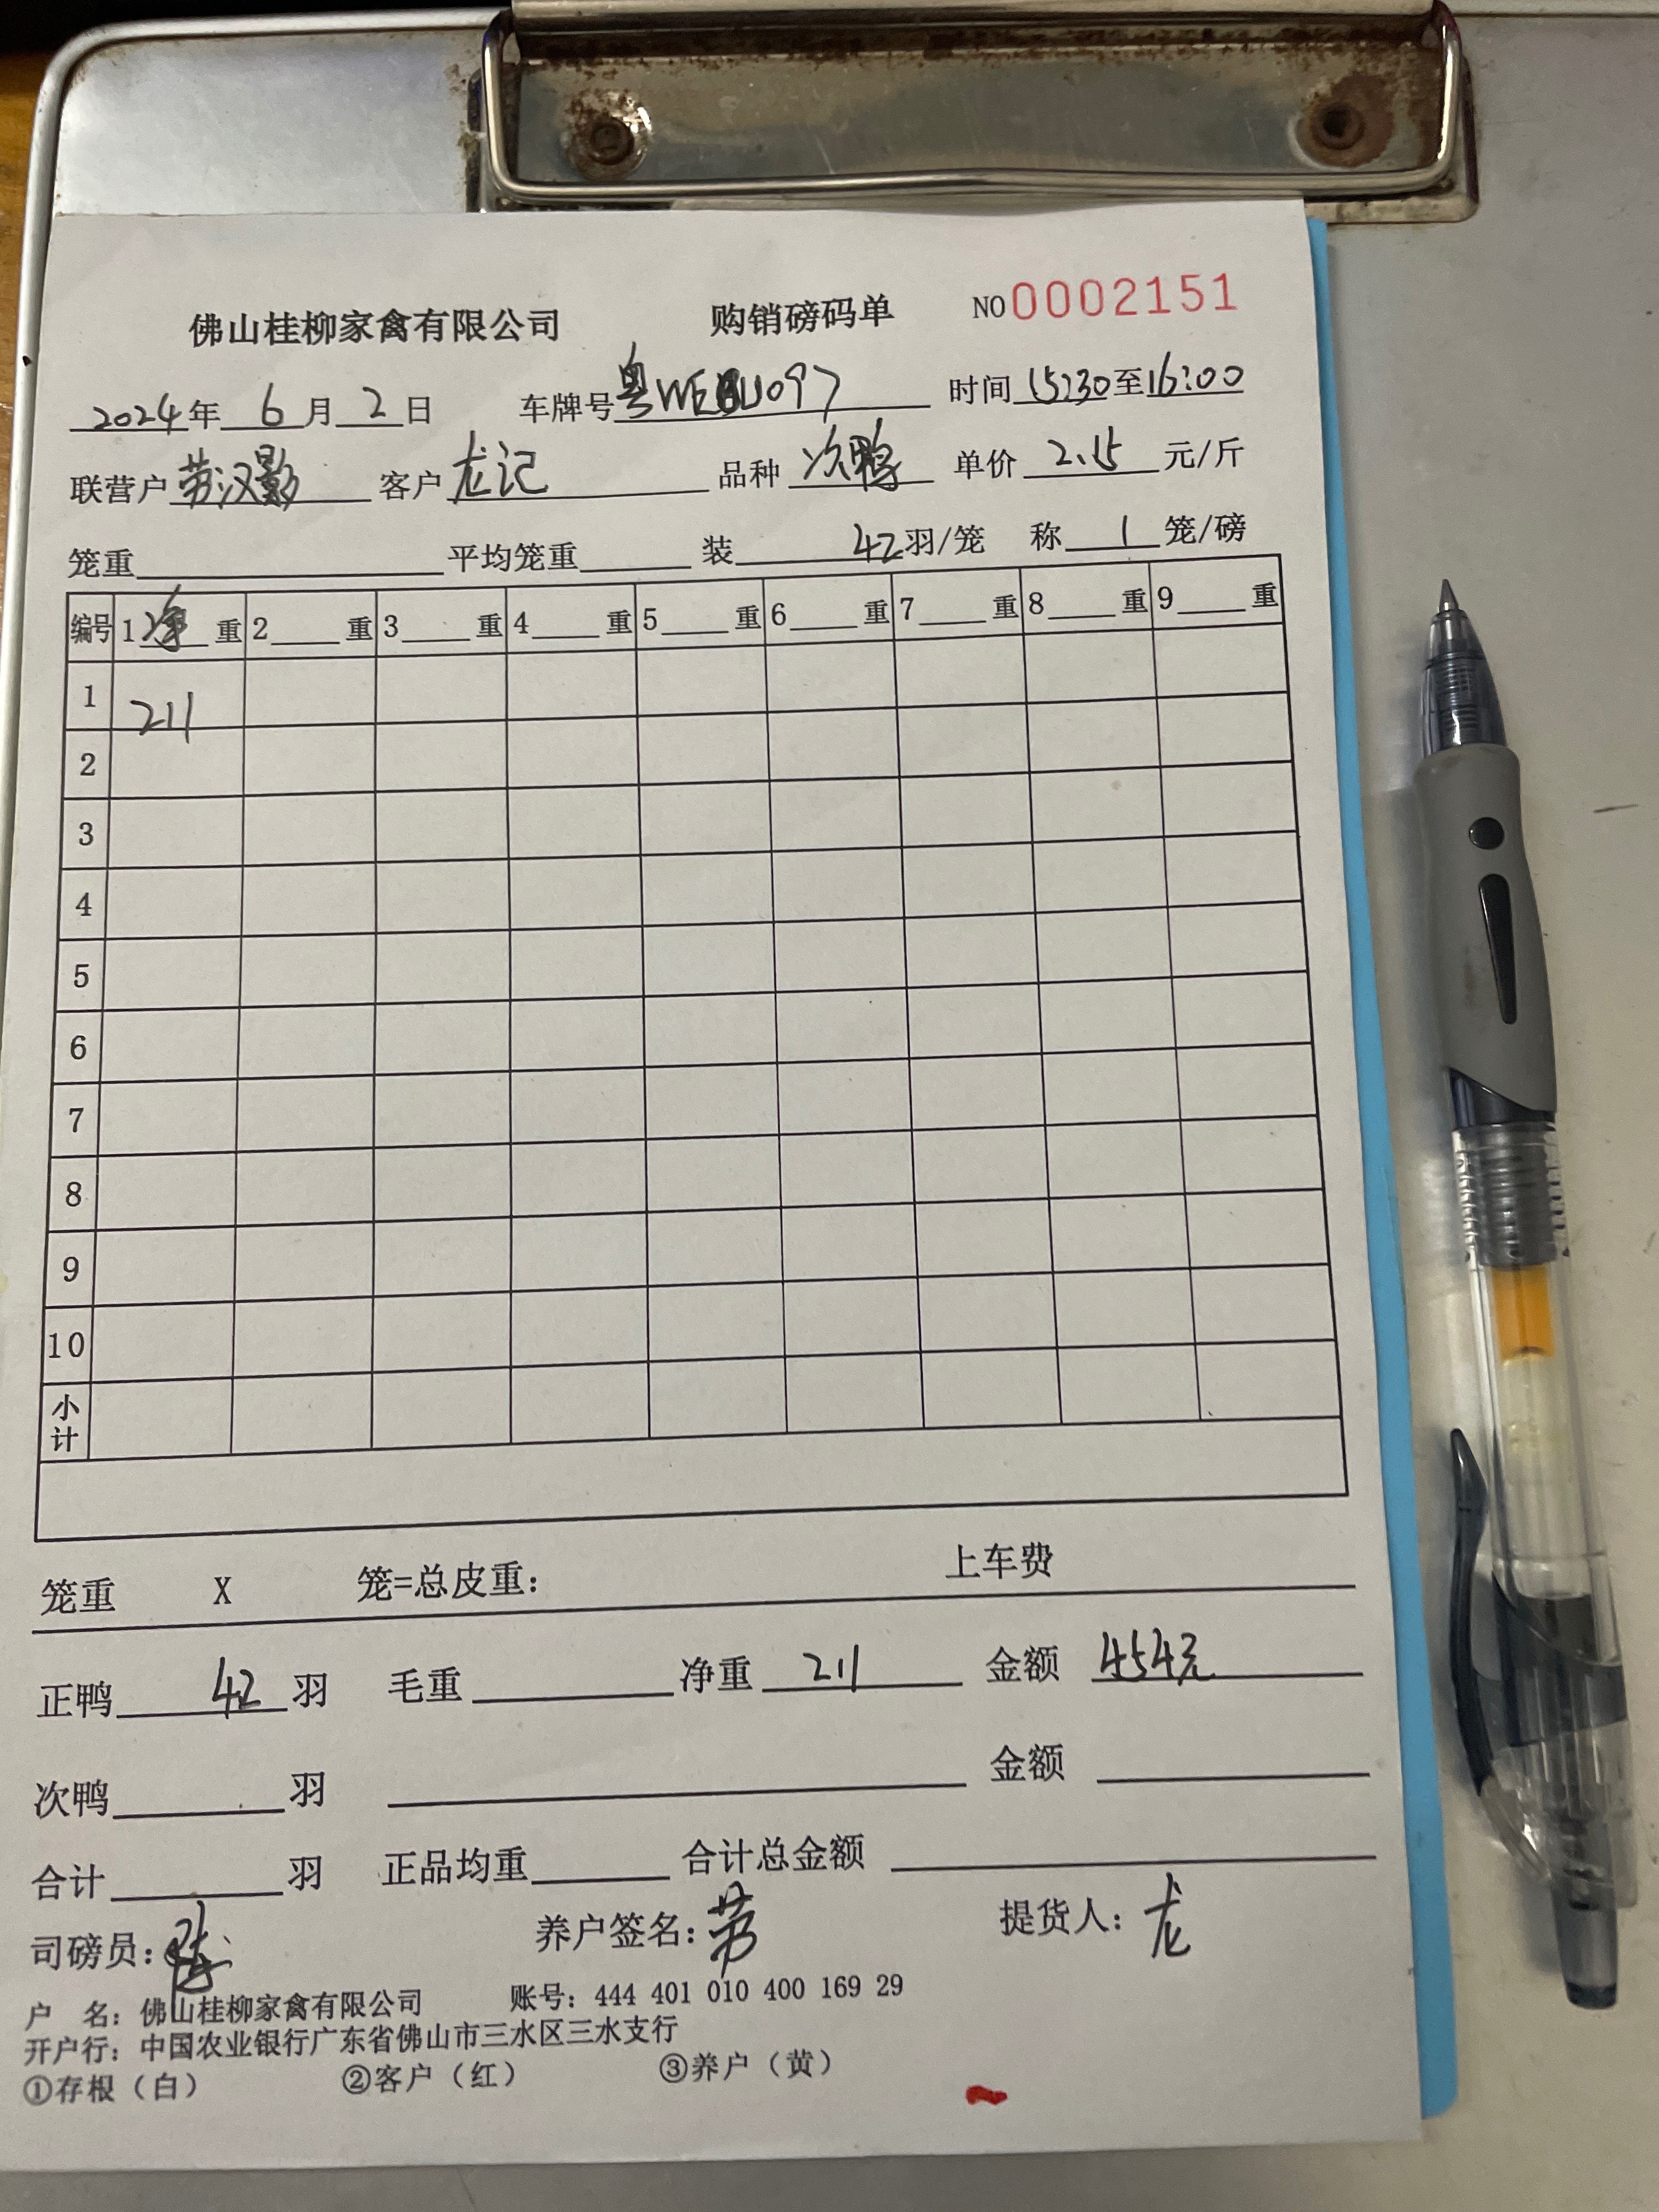 佛山桂柳家禽有限公司 购销磅码单 NO0002151
2024年 6月 2日 车牌号 粤WE U097 时间 15:30至16:00
联营户 劳汉影 客户 龙记 品种 次鸭 单价 2.15 元/斤
笼重 平均笼重 装 42羽/笼 称 1 笼/磅
编号 1净重 2 重 3 重 4 重 5 重 6 重 7 重 8 重 9 重
1 211
2
3
4
5
6
7
8
9
10
小计
笼重 X 笼=总皮重: 上车费
正鸭 42 羽 毛重 净重 211 金额 454元
次鸭 羽 金额
合计 羽 正品均重 合计总金额
司磅员: 养户签名:劳 提货人:龙
户 名:佛山桂柳家禽有限公司 账号:444 401 010 400 169 29
开户行:中国农业银行广东省佛山市三水区三水支行
①存根（白） ②客户（红） ③养户（黄）